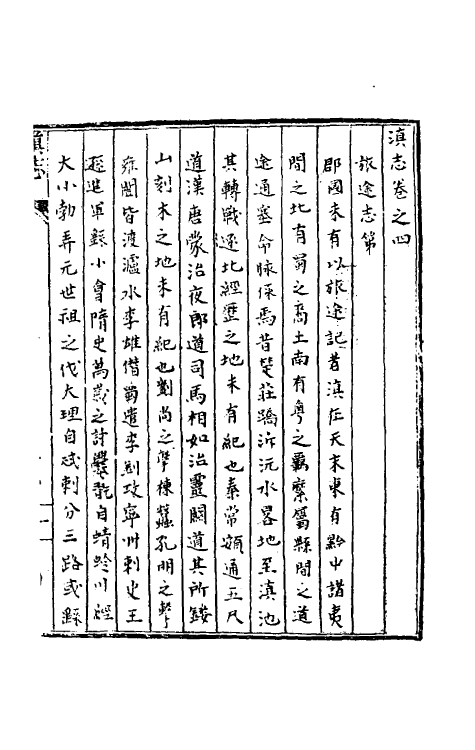 滇志卷之四
旅途志第
郡國未有以旅途記者滇在天末東有黔中諸夷
間之北有蜀之裔土南有粤之羈縻蜀縣間之道
途通塞命脉係焉昔楚莊蹻泝沅水畧地至滇池
其轉戰逐北經歷之地未有紀也秦常頞通五尺
道漢唐蒙治夜郎道司馬相如治靈關道其所鏤
山刻木之地未有紀也劉尚之擊棟蠶孔明之擊
雍闓皆渡瀘水李雄僭蜀遣李剬攻寧州刺史王
遜進軍繇小會隋史萬歲之討爨翫自蜻蛉川經
大小勃弄元世祖之伐大理自忒剌分三路或繇
滇志